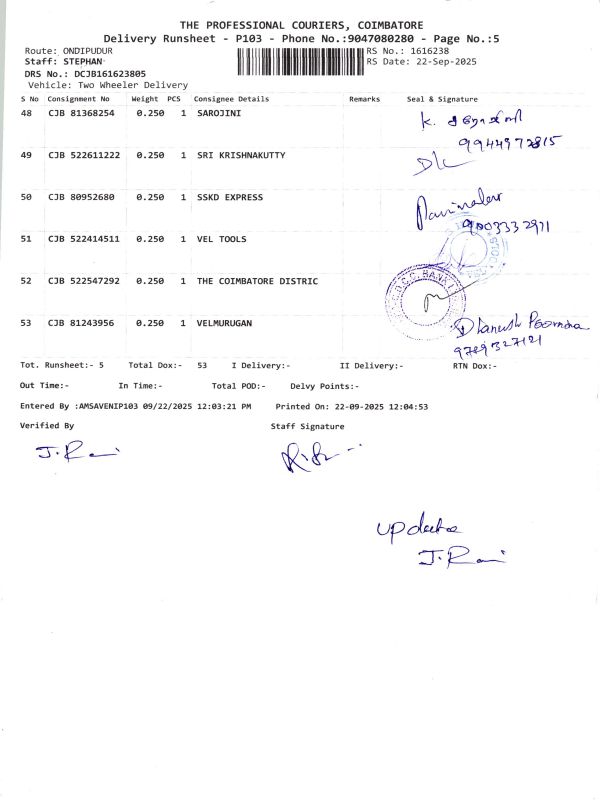 THE PROFESSIONAL COURIERS, COIMBATORE
Delivery Runsheet - P103 - Phone No.:9047080280 - Page No.:5
Route: ONDIPUDUR RS No.: 1616238
Staff: STEPHAN RS Date: 22-Sep-2025
DRS No.: DCJB161623805
Vehicle: Two Wheeler Delivery
S No Consignment No Weight PCS Consignee Details Remarks Seal & Signature
48 CJB 81368254 0.250 1 SAROJINI K.
9944972815
49 CJB 522611222 0.250 1 SRI KRISHNAKUTTY
50 CJB 80952680 0.250 1 SSKD EXPRESS
9003332971
51 CJB 522414511 0.250 1 VEL TOOLS
52 CJB 522547292 0.250 1 THE COIMBATORE DISTRIC
53 CJB 81243956 0.250 1 VELMURUGAN Dhanush
9789327121
Tot. Runsheet:- 5 Total Dox:- 53 I Delivery:- II Delivery:- RTN Dox:-
Out Time:- In Time:- Total POD:- Delvy Points:-
Entered By :AMSAVENIP103 09/22/2025 12:03:21 PM Printed On: 22-09-2025 12:04:53
Verified By Staff Signature
J. Rani
update
J. Rani